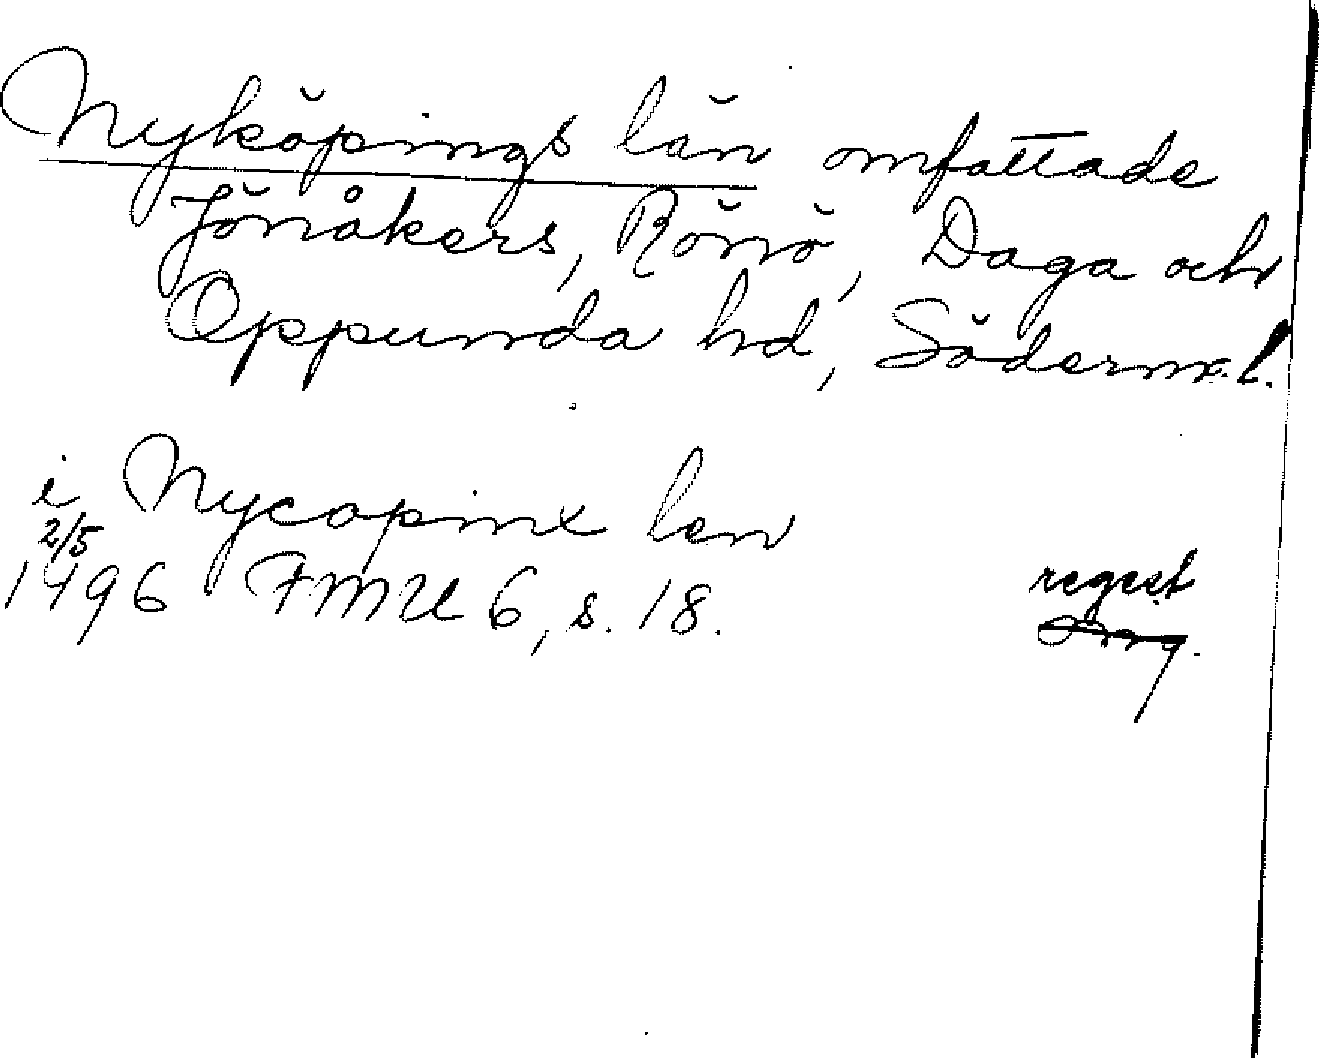 Nyköpings län omfattade
Jönåkers, Rönö, Daga och
Oppunda hd, Söderm. l.
i Nycopinx len
2/5
1496 FMU 6, s. 18.
regest
orig.